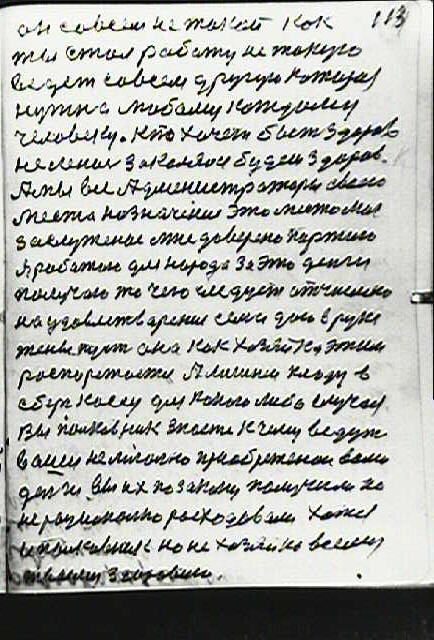 113
он совсем не такой как
ты стал работу не такую
ведет совсем другую которая
нужна любому каждому
человеку. Кто хочет быть здоров
не ленись закаляйся будеш здоров.
А мы все Администраторы своего
места назначения это место моя
заслуженое мне доверено партию
Я работаю для народа за это деньги
получаю то чего следует отчисляю
на удовлетварения семи даю в руки
жены пусть она как хозяйка этим
распоряжается А лишния кладу в
сберкассу для какого либо случая
Вы полковник знаете к чему ведут
вашей не приобретеной вами
деньги, вы их по закону получили но
не рационально расходовали хотя
и полковник но не хозяйка всему
твоему здоровию.